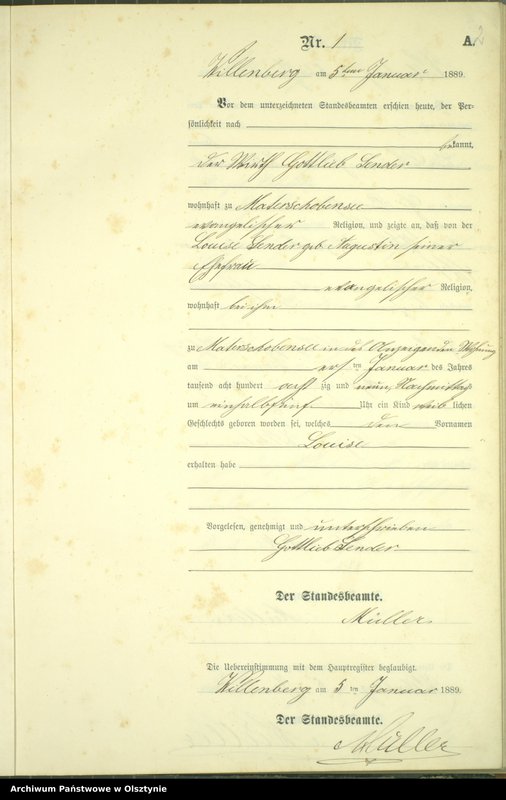 Nr. 1 A. 2
Willenberg am 5ten Januar 1889.
Vor dem unterzeichneten Standesbeamten erschien heute, der Per-
sönlichkeit nach
bekannt,
der Wirth Gottlieb Sender
wohnhaft zu Materschobensee
evangelischer Religion, und zeigte an, daß von der
Louise Sender geb. Augustin seiner
Ehefrau
evangelischer Religion,
wohnhaft bei ihm
zu Materschobensee in des Anzeigenden Wohnung
am ersten Januar des Jahres
tausend acht hundert acht zig und neun, Nachmittags
um einhalbfünf Uhr ein Kind weib lichen
Geschlechts geboren worden sei, welches den Vornamen
Louise
erhalten habe
Vorgelesen, genehmigt und unterschrieben
Gottlieb Sender.
Der Standesbeamte.
Müller.
Die Uebereinstimmung mit dem Hauptregister beglaubigt.
Willenberg am 5 ten Januar 1889.
Der Standesbeamte.
Müller
Archiwum Państwowe w Olsztynie